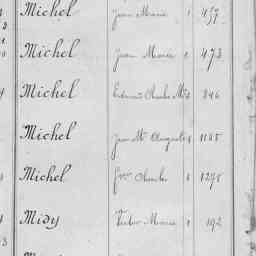 Michel Jean Marie 1 457
Michel Jean Marie 1 473
Michel Edmond Charles 846
Michel Jean M. Auguste 1185
Michel Charles 1 1295
Midy Victor Marie 1 192